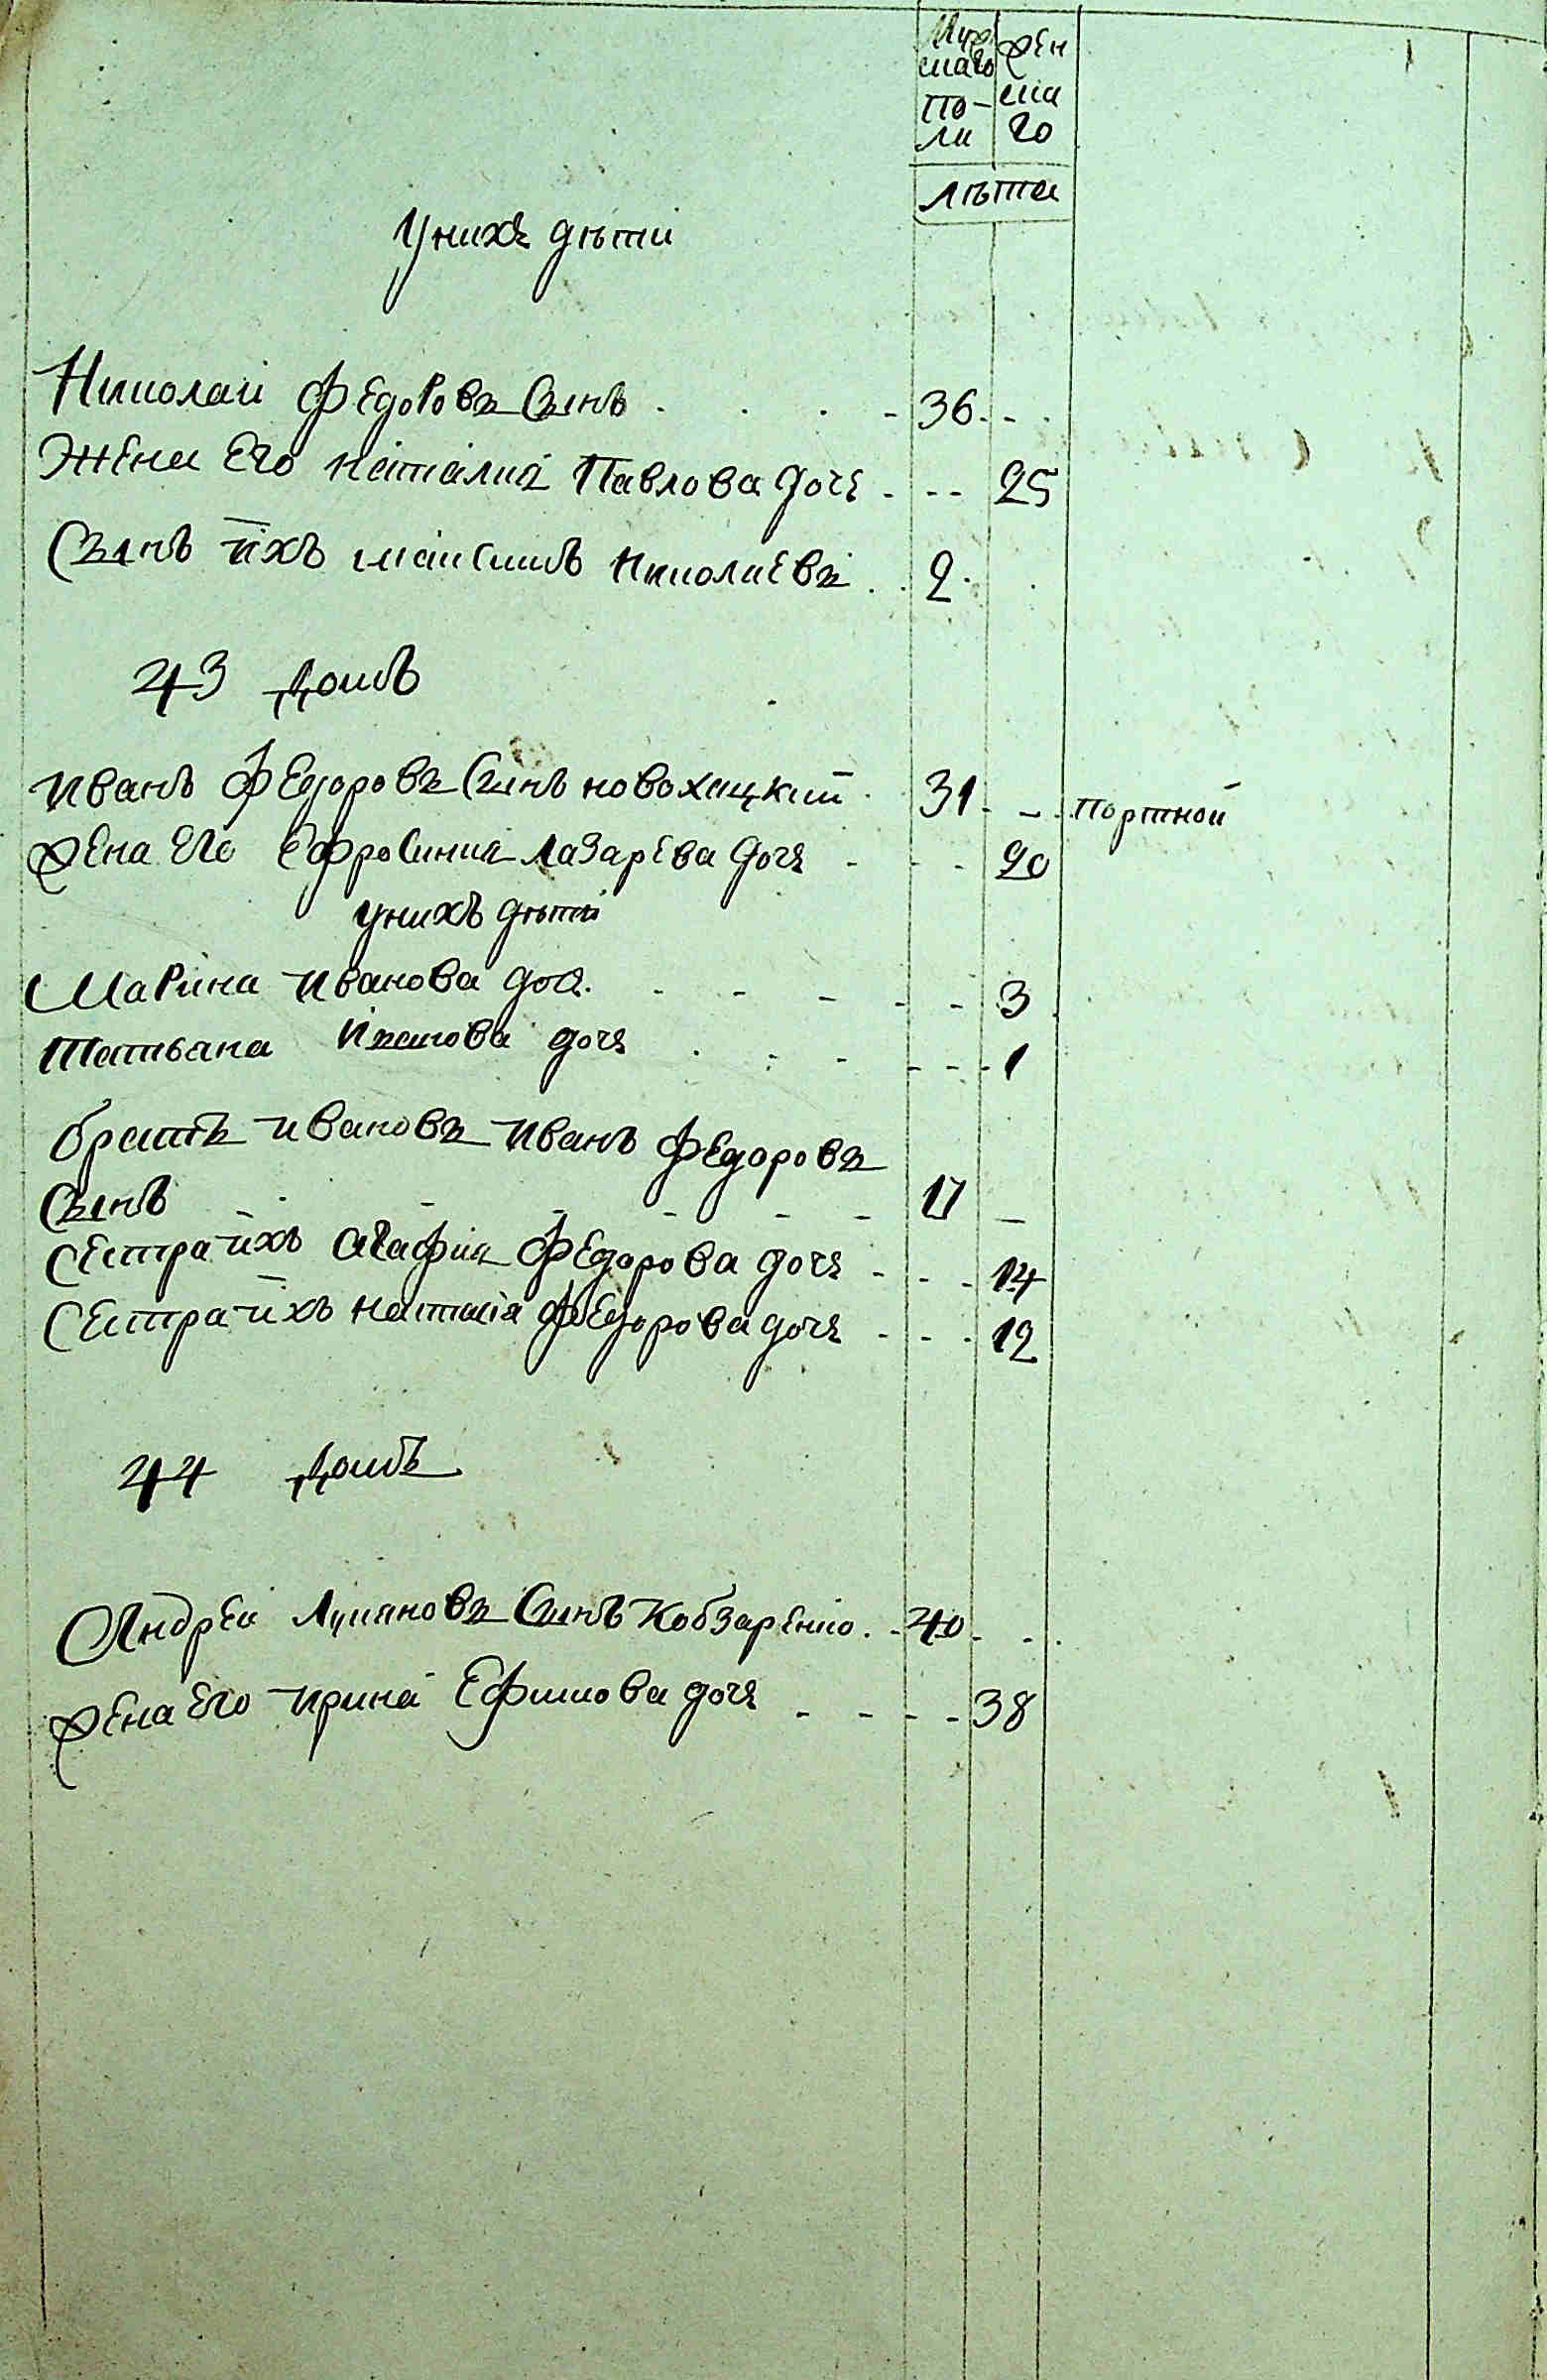 Муж
скаго
По-
ла
Жен
ска
го
лѣта
У нихъ дѣти
Николай Федоровъ Сынъ 36
Жена Его наталия Павлова дочь 25
Сынъ ихъ максимъ николаевъ 2
43 Домъ
Иванъ Федоровъ Сынъ новохацкий 31 Портной
Жена Его Ефросиния Лазарева дочь 20
у нихъ дѣти
Марина Иванова доч. 3
Татьяна Иванова дочь 1
братъ ивановъ Иванъ Федоровъ
Сынъ 17
Сестра ихъ агафия Федорова дочь 14
Сестра ихъ Федорова дочь 12
44 Домъ
Андрей Лукяновъ Сынъ Кобзаренко 40
Жена Его Ирина Ефимова дочь 38